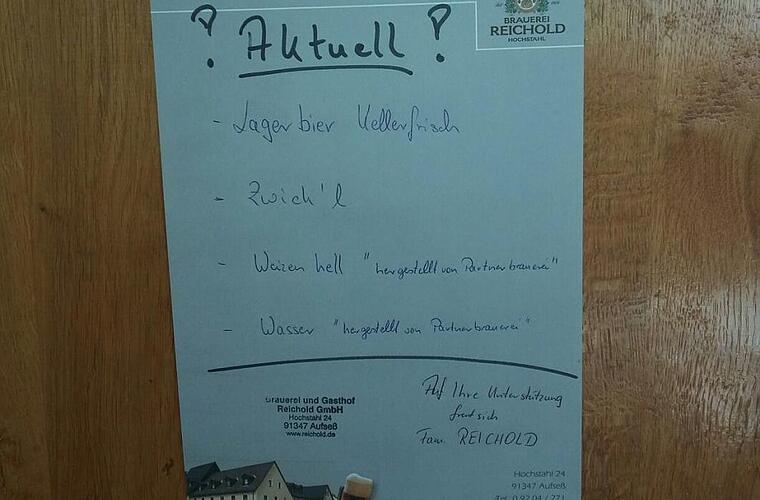 BRAUEREI
REICHOLD
HOCHSTAHL
! Aktuell !
- Lagerbier Kellerfrisch
- Zwick'l
- Weizen hell "hergestellt von Partnerbrauerei"
- Wasser "hergestellt von Partnerbrauerei"
Auf Ihre Unterstützung
freut sich
Fam. REICHOLD
Brauerei und Gasthof
Reichold GmbH
Hochstahl 24
91347 Aufseß
www.reichold.de
Hochstahl 24
91347 Aufseß
Tel. 0 92 04 / 271